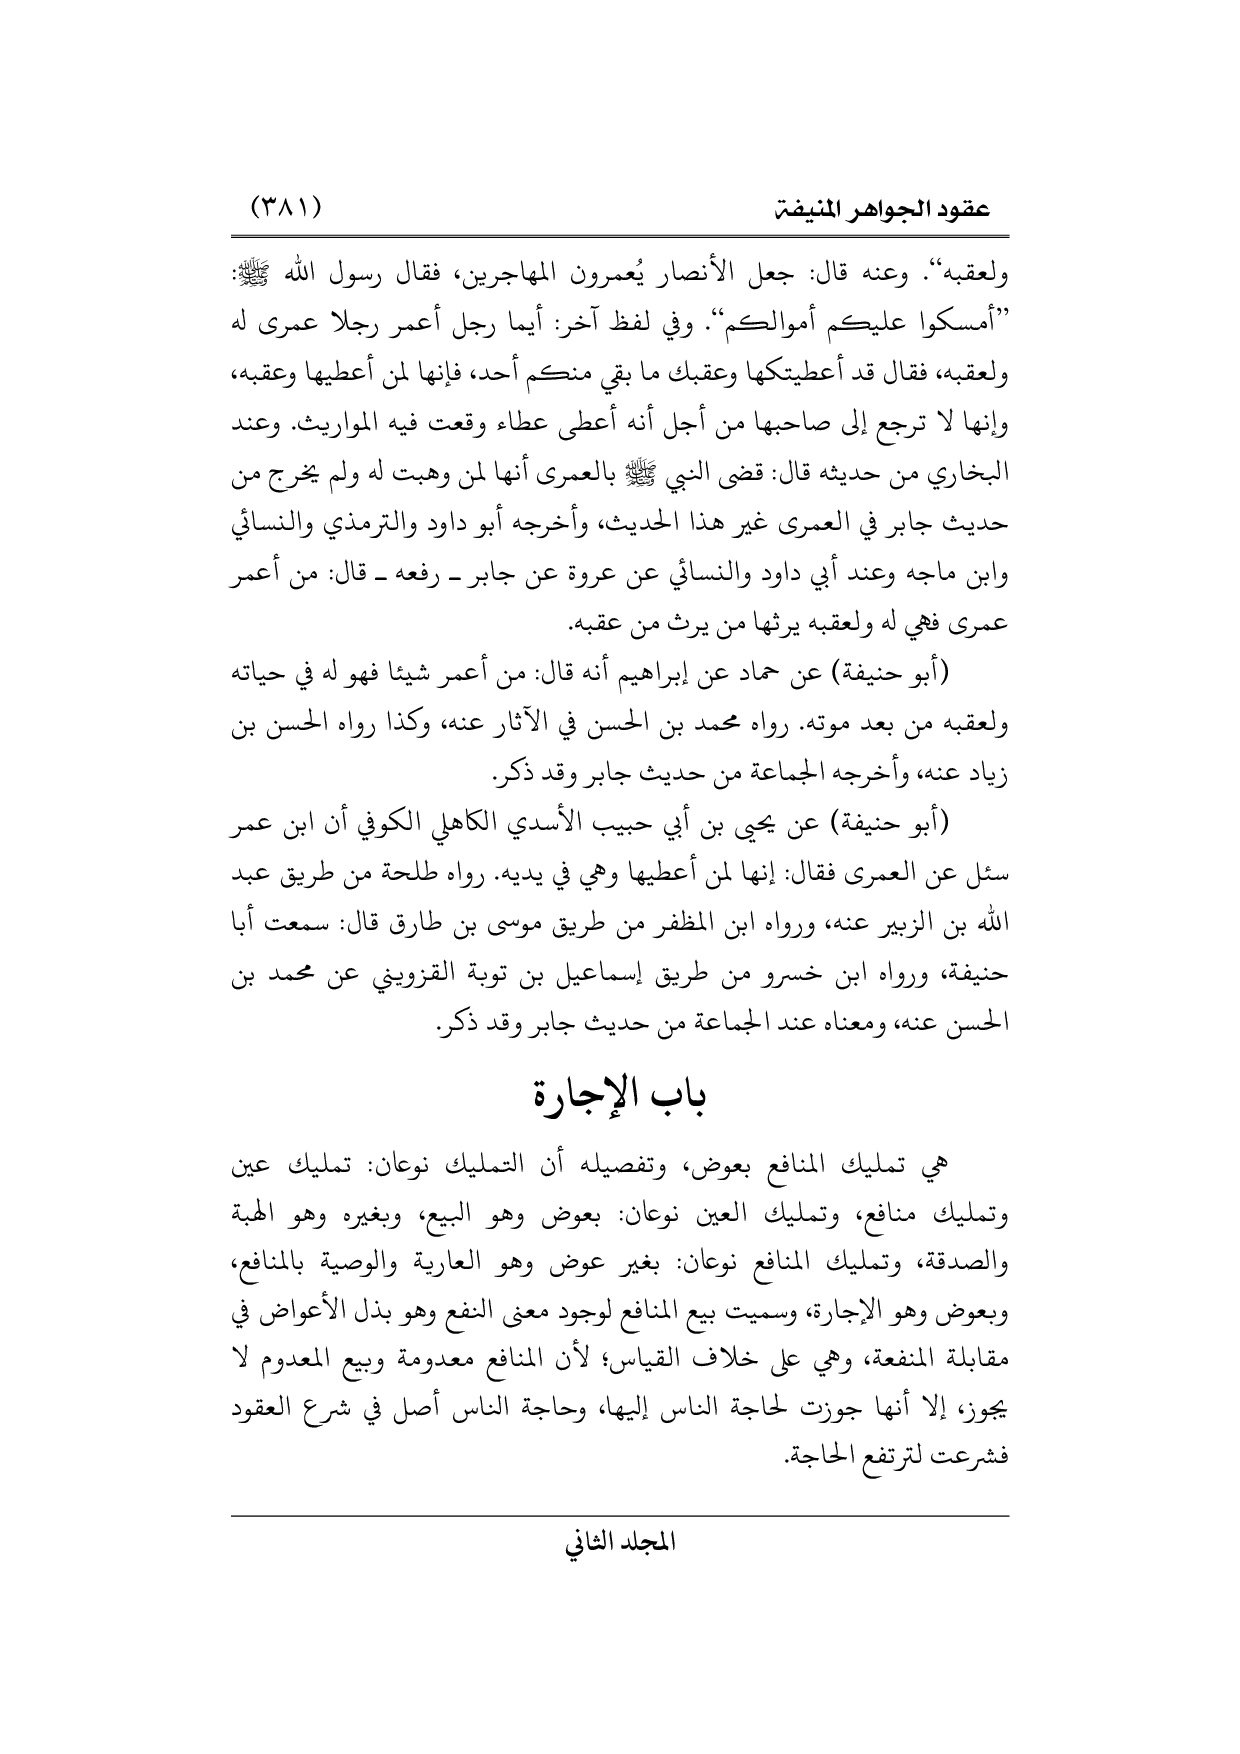 عقود الجواهر المنيفة (٣٨١)
ولعقبه“. وعنه قال: جعل الأنصار يُعمرون المهاجرين، فقال رسول الله ﷺ:
”أمسكوا عليكم أموالكم“. وفي لفظ آخر: أيما رجل أعمر رجلا عمرى له
ولعقبه، فقال قد أعطيتكها وعقبك ما بقي منكم أحد، فإنها لمن أعطيها وعقبه،
وإنها لا ترجع إلى صاحبها من أجل أنه أعطى عطاء وقعت فيه المواريث. وعند
البخاري من حديثه قال: قضى النبي ﷺ بالعمرى أنها لمن وهبت له ولم يخرج من
حديث جابر في العمرى غير هذا الحديث، وأخرجه أبو داود والترمذي والنسائي
وابن ماجه وعند أبي داود والنسائي عن عروة عن جابر ـ رفعه ـ قال: من أعمر
عمرى فهي له ولعقبه يرثها من يرث من عقبه.
(أبو حنيفة) عن حماد عن إبراهيم أنه قال: من أعمر شيئا فهو له في حياته
ولعقبه من بعد موته. رواه محمد بن الحسن في الآثار عنه، وكذا رواه الحسن بن
زياد عنه، وأخرجه الجماعة من حديث جابر وقد ذكر.
(أبو حنيفة) عن يحيى بن أبي حبيب الأسدي الكاهلي الكوفي أن ابن عمر
سئل عن العمرى فقال: إنها لمن أعطيها وهي في يديه. رواه طلحة من طريق عبد
الله بن الزبير عنه، ورواه ابن المظفر من طريق موسى بن طارق قال: سمعت أبا
حنيفة، ورواه ابن خسرو من طريق إسماعيل بن توبة القزويني عن محمد بن
الحسن عنه، ومعناه عند الجماعة من حديث جابر وقد ذكر.
باب الإجارة
هي تمليك المنافع بعوض، وتفصيله أن التمليك نوعان: تمليك عين
وتمليك منافع، وتمليك العين نوعان: بعوض وهو البيع، وبغيره وهو الهبة
والصدقة، وتمليك المنافع نوعان: بغير عوض وهو العارية والوصية بالمنافع،
وبعوض وهو الإجارة، وسميت بيع المنافع لوجود معنى النفع وهو بذل الأعواض في
مقابلة المنفعة، وهي على خلاف القياس؛ لأن المنافع معدومة وبيع المعدوم لا
يجوز، إلا أنها جوزت لحاجة الناس إليها، وحاجة الناس أصل في شرع العقود
فشرعت لترتفع الحاجة.
المجلد الثاني